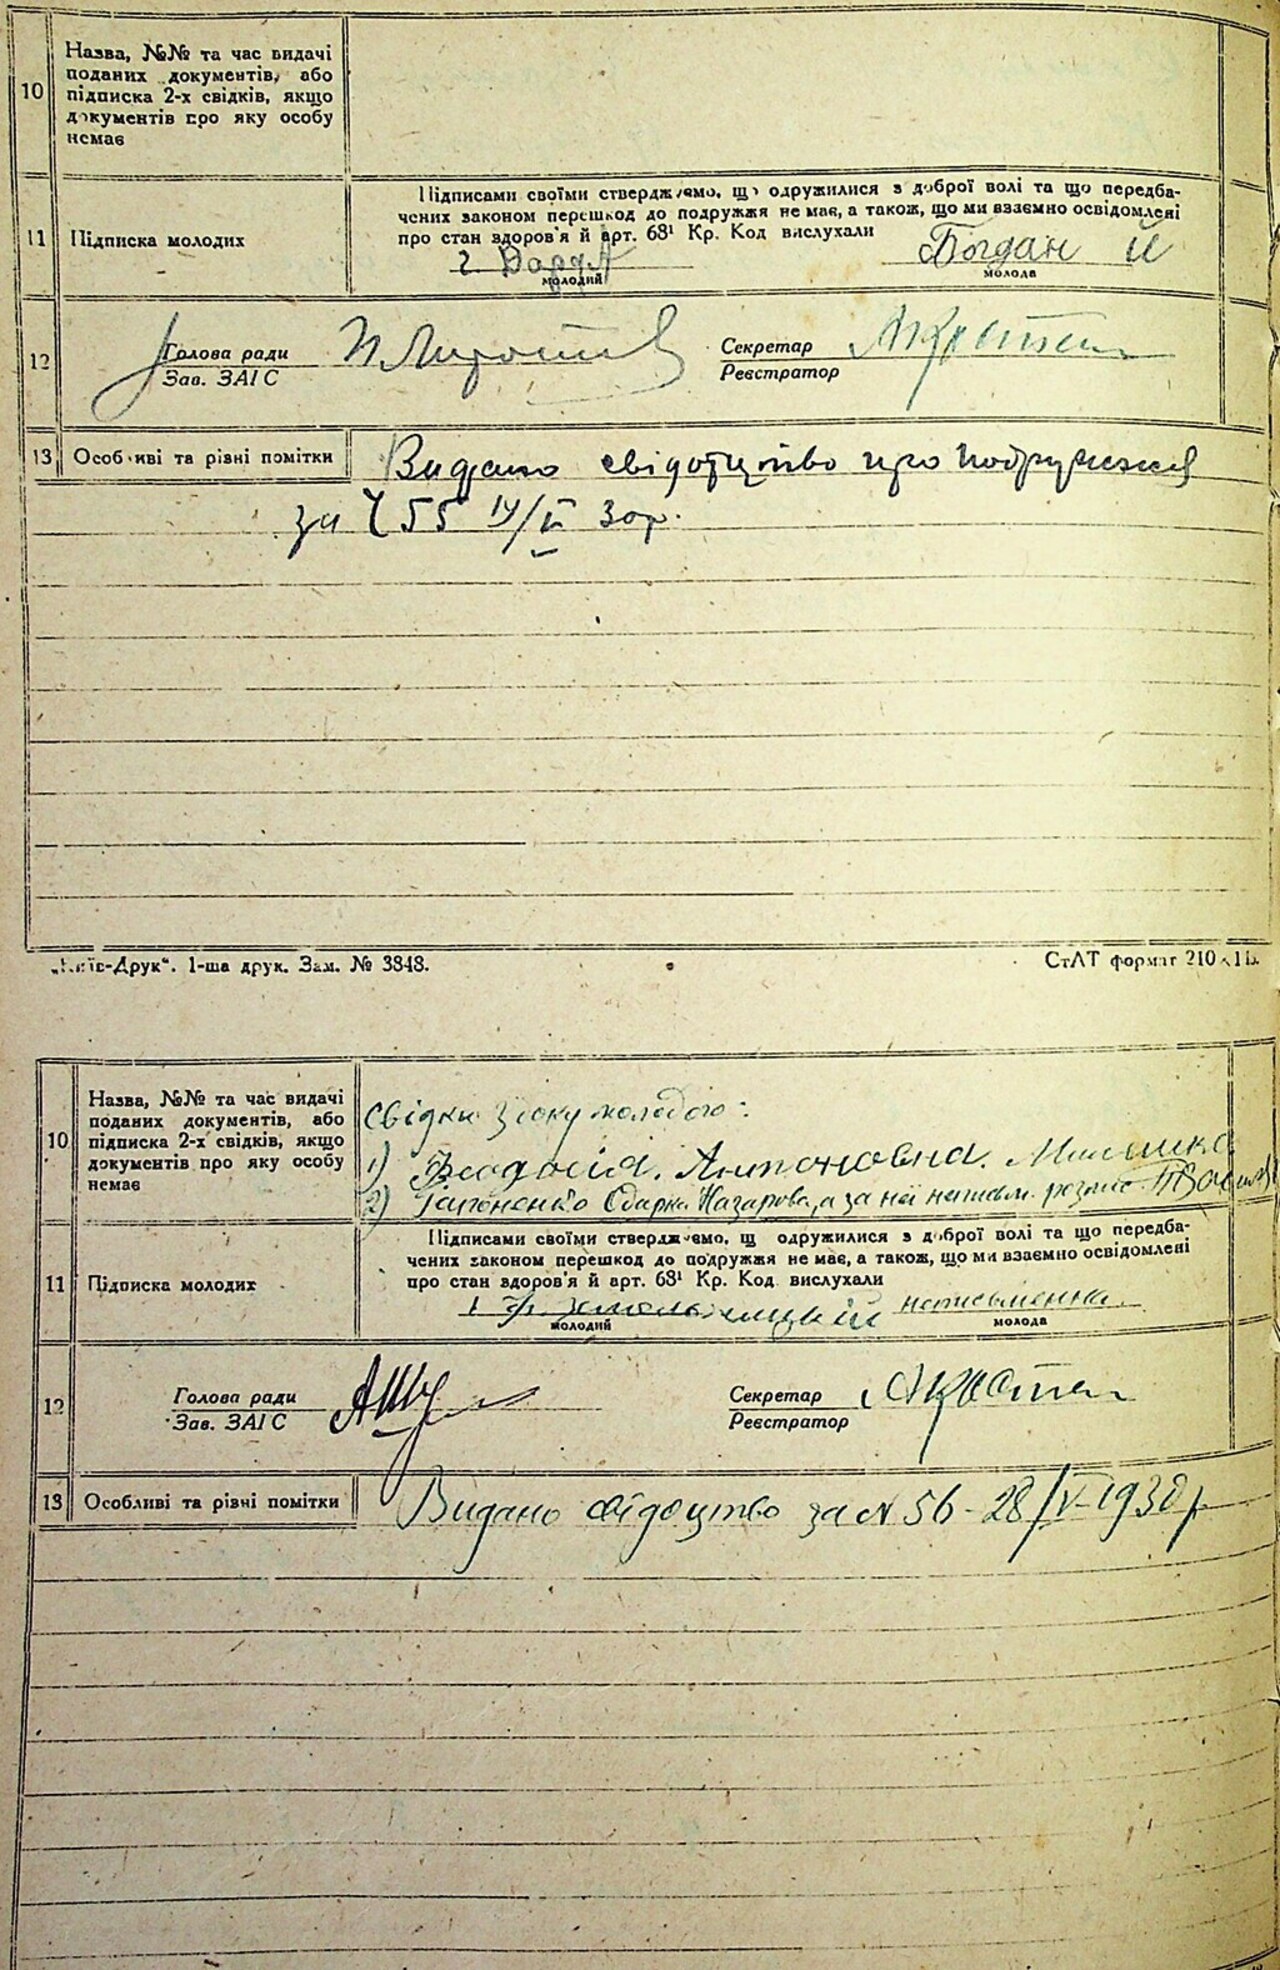 10 Назва, №№ та час видачі
поданих документів, або
підписка 2-х свідків, якщо
документів про яку особу
немає
11 Підписка молодих
Підписами своїми стверджуємо, що одружилися з доброї волі та що передба-
чених законом перешкод до подружжя не має, а також, що ми взаємно освідомлені
про стан здоров'я й арт. 68¹ Кр. Код вислухали
Богдан Й
молодий молода
12 Голова ради Секретар
Зав. ЗАГС Реєстратор
13 Особливі та різні помітки Видано свідоцтво про подружжя
за 55 IV/V 30р.
„Київ-Друк“. 1-ша друк. Зам. № 3848. СтАТ формат 210
10 Назва, №№ та час видачі
поданих документів, або
підписка 2-х свідків, якщо
документів про яку особу
немає
Свідки з боку молодого:
1) Феодосія. Антоновна.
2) Гапоненко Одарка Назарова, а за неї неписьм. розпис
11 Підписка молодих
Підписами своїми стверджуємо, щ одружилися з доброї волі та що передба-
чених законом перешкод до подружжя не має, а також, що ми взаємно освідомлені
про стан здоров'я й арт. 68¹ Кр. Код вислухали
неписьменна
молодий молода
12 Голова ради Секретар
Зав. ЗАГС Реєстратор
13 Особливі та різні помітки Видано свідоцтво за N 56 - 28/V-1930 р